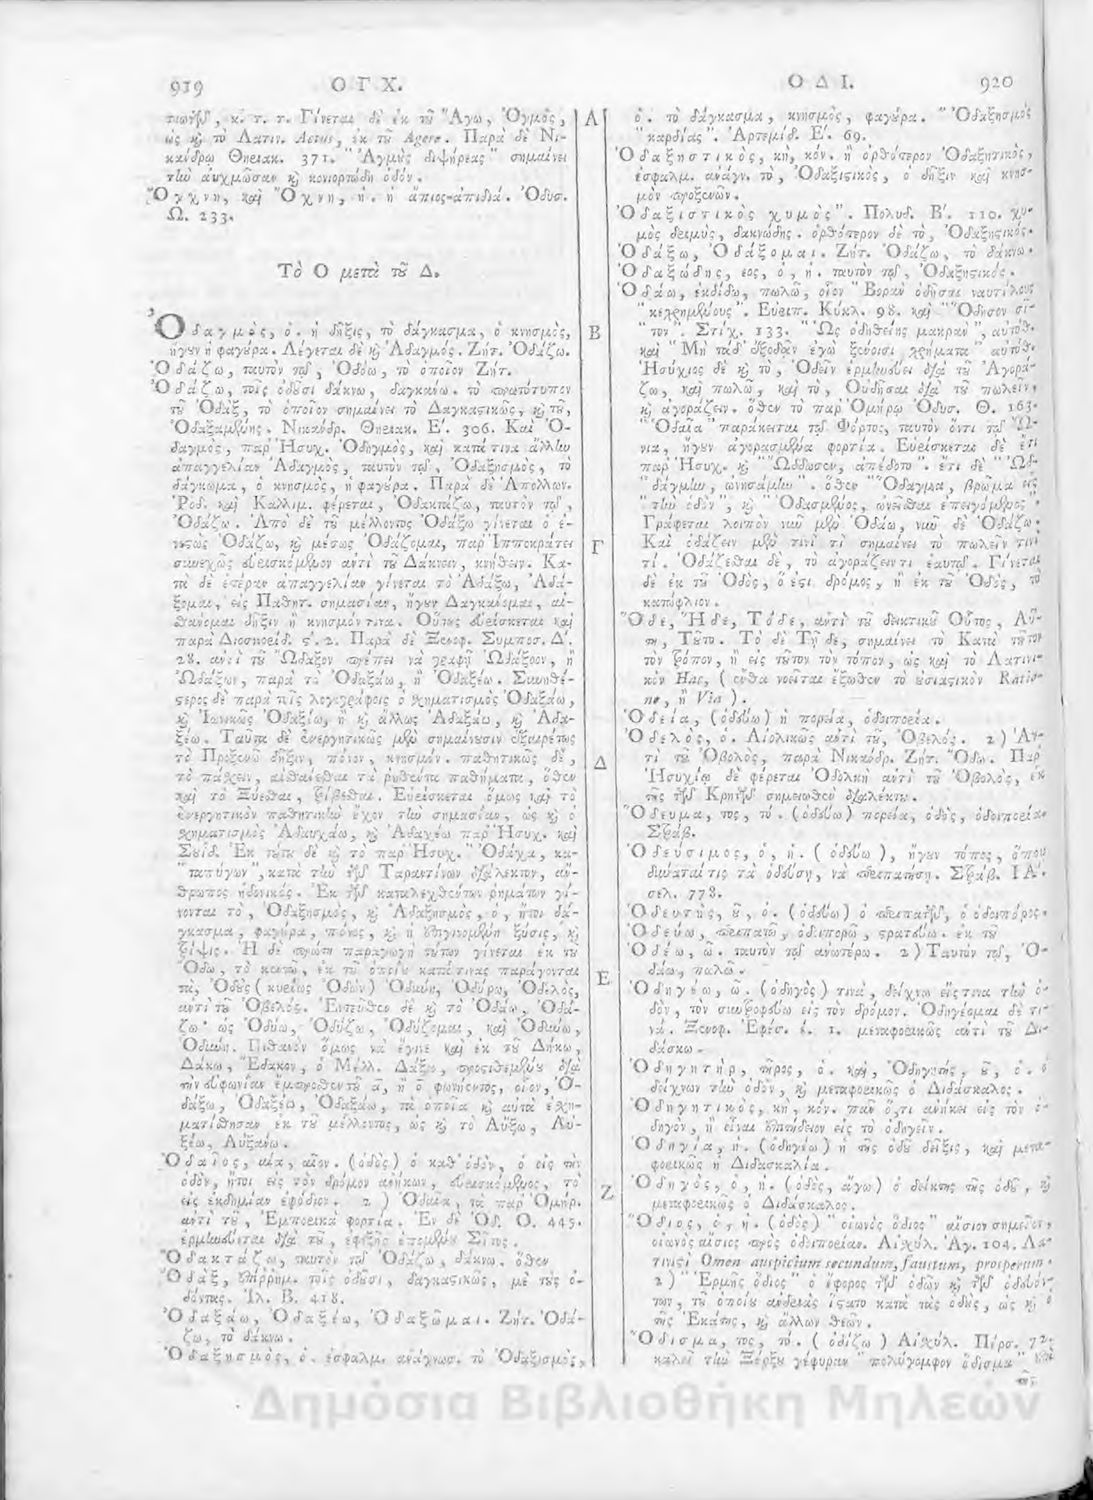 919 Ο Γ Χ.
τιωτῶν, κ. τ. τ. Γίνεται δὲ ἐκ τοῦ Ἄγω, Ὄγμος,
ὡς καὶ τὸ Λατιν. Actus, ἐκ τοῦ Agere. Παρὰ δὲ Νι-
κάνδρῳ Θηειακ. 371. "Ἄγμὺς διψήρεας" σημαίνει
τὴν αὐχμῶσαν καὶ κονιορτώδη ὁδόν.
Ὄγχνη, καὶ Ὄχνη, ἡ. ἡ ἄπιος-ἀπιδιά. Ὀδυσ.
Ω. 233.
Τὸ Ο μετὰ τοῦ Δ.
Ὀδαγμὸς, ὁ. ἡ δῆξις, τὸ δάγκασμα, ὁ κνησμὸς,
ἤγουν ἡ φαγούρα. Λέγεται δὲ καὶ Ἀδαγμός. Ζήτ. Ὀδάζω.
Ὀδάζω, ταυτὸν τῷ, Ὀδάω, τὸ ὁποῖον Ζήτ.
Ὀδάζω, τοῖς ὀδοῦσι δάκνω, δαγκάνω. τὸ πρωτότυπον
τοῦ Ὀδάξ, τὸ ὁποῖον σημαίνει τὸ Δαγκαστικῶς, καὶ τοῦ,
Ὀδαξαμένης. Νικάνδρ. Θηειακ. Ε΄. 306. Καὶ Ὀ-
δαγμὸς, παρ' Ἡσυχ. Ὀδηγμὸς, καὶ κατά τινα ἄλλην
ἀπαγγελίαν Ἀδαγμὸς, ταυτὸν τῷ, Ὀδαξησμὸς, τὸ
δάγκωμα, ὁ κνησμὸς, ἡ φαγούρα. Παρὰ δὲ Ἀπολλων.
Ῥοδ. καὶ Καλλιμ. φέρεται, Ὀδακτάζω, ταυτὸν τῷ,
Ὀδάζω. Ἀπὸ δὲ τοῦ μέλλοντος Ὀδάξω γίνεται ὁ ἐ-
νεστὼς Ὀδάξω, καὶ μέσως Ὀδάξομαι, παρ' Ἱπποκράτει
συνεχῶς εὑρισκόμενον ἀντὶ τοῦ Δάκνειν, κνήθειν. Κα-
τὰ δὲ ἑτέραν ἀπαγγελίαν γίνεται τὸ Ἀδάξω, Ἀδά-
ξομαι, εἰς Παθητ. σημασίαν, ἤγουν Δαγκάνομαι, αἰ-
σθάνομαι δῆξιν ἢ κνησμόν τινα. Οὕτως εὑρίσκεται καὶ
παρὰ Διοσκορίδ. ς΄. 2. Παρὰ δὲ Ξενοφ. Συμποσ. Δ΄.
28. ἀντὶ τοῦ Ὤδαξον πρέπει νὰ γραφῇ Ὠδάξουν, ἢ
Ὠδάξων, παρὰ τὸ Ὀδαξάω, ἢ Ὀδαξέω. Συνηθέ-
στερος δὲ παρὰ τοῖς λογογράφοις ὁ σχηματισμὸς Ὀδαξάω,
καὶ Ἰωνικῶς Ὀδαξέω, ἢ καὶ ἄλλως Ἀδαξάω, καὶ Ἀδα-
ξέω. Ταῦτα δὲ ἐνεργητικῶς μὲν σημαίνουσιν ἐξαιρέτως
τὸ Προξενῶ δῆξιν, πόνον, κνησμόν. παθητικῶς δὲ,
τὸ πάσχειν, αἰσθάνεσθαι τὰ ῥηθέντα παθήματα, ὅθεν
καὶ τὸ Ξύεσθαι, τρίβεσθαι. Εὑρίσκεται ὅμως καὶ τὸ
ἐνεργητικὸν παθητικὴν ἔχον τὴν σημασίαν, ὡς καὶ ὁ
σχηματισμὸς Ἀδαυχάω, καὶ Ἀδαχέω παρ' Ἡσυχ. καὶ
Σουΐδ. Ἐκ τούτου δὲ καὶ τὸ παρ' Ἡσυχ. "Ὀδάχα, κα-
"ταπύγων", κατὰ τὴν τῶν Ταραντίνων διάλεκτον, ἄν-
θρωπος ἡδονικός. Ἐκ τῶν καταλεχθέντων ῥημάτων γί-
νονται τὸ, Ὀδαξησμὸς, καὶ Ἀδαξησμὸς, ὁ, ἤτοι δά-
γκασμα, φαγούρα, πόνος, καὶ ἡ ἐπιγινομένη ξύσις, καὶ
τρίψις. Ἡ δὲ πρώτη παραγωγὴ τούτων γίνεται ἐκ τοῦ
Ὄδω, τὸ κόπτω, ἐκ τοῦ ὁποίου κατά τινας παράγονται
τὰ, Ὀδὺς (κυρίως Ὀδὼν) Ὀδύνη, Ὀδύρω, Ὀδελὸς,
ἀντὶ τοῦ Ὀβελός. Ἐντεῦθεν δὲ καὶ τὸ Ὀδάω, Ὀδά-
ζω· ὡς Ὀδύω, Ὀδύζω, Ὀδύζομαι, καὶ Ὀδύνω,
Ὀδύνη. Πιθανὸν ὅμως νὰ ἔγινε καὶ ἐκ τοῦ Δήκω,
Δάκω, Ἔδακον, ὁ Μέλλ. Δάξω, προστιθεμένου διὰ
τὴν εὐφωνίαν ἔμπροσθεν τοῦ ἀ, ἢ ὀ φωνήεντος, οἷον, Ὀ-
δάξω, Ὀδαξέω, Ὀδαξάω, τὰ ὁποῖα καὶ αὐτὰ ἐσχη-
ματίσθησαν ἐκ τοῦ μέλλοντος, ὡς καὶ τὸ Αὔξω, Αὐ-
ξέω, Αὐξάνω.
Ὀδαῖος, αία, αῖον. (ὁδὸς) ὁ καθ' ὁδὸν, ὁ εἰς τὴν
ὁδὸν, ἤτοι εἰς τὸν δρόμον ἀνήκων, εὑρισκόμενος, τὸ
εἰς ἐκδημίαν ἐφόδιον. 2) Ὁδαῖα, τὰ παρ' Ὁμήρ.
ἀντὶ τοῦ, Ἐμπορικὰ φορτία. Ἐν δὲ Ὀδ. Ο. 445.
ἑρμηνεύεται διὰ τοῦ, ἐφεξῆς ἑπομένου Σῖτος.
Ὀδακτάζω, ταυτὸν τῷ Ὀδάζω, δάκνω. ὅθεν
Ὀδὰξ, ἐπίρρημ. τοῖς ὀδοῦσι, δαγκαστικῶς, μὲ τοὺς ὀ-
δόντας. Ἰλ. Β. 418.
Ὀδαξάω, Ὀδαξέω, Ὀδαξῶμαι. Ζήτ. Ὀδά-
ζω, τὸ δάκνω.
Ὀδαξησμὸς, ὁ. ἐσφαλμ. ἀνάγνωσ. τὸ Ὀδαξισμὸς,
Α
Β
Γ
Δ
Ε
Ζ
Ο Δ Ι. 920
ὁ. τὸ δάγκασμα, κνησμὸς, φαγούρα. "Ὀδαξησμὸς
"καρδίας". Ἀρτεμιδ. Ε΄. 69.
Ὀδαξηστικὸς, κὴ, κόν. ἢ ὀρθότερον Ὀδαξητικὸς,
ἐσφαλμ. ἀνάγν. τὸ, Ὀδαξιστικὸς, ὁ δῆξιν καὶ κνησ-
μὸν προξενῶν.
"Ὀδαξιστικὸς χυμὸς". Πολυδ. Β΄. 110. χυ-
μὸς δειμὺς, δακνώδης. ὀρθότερον δὲ τὸ, Ὀδαξηστικός.
Ὀδάξω, Ὀδάξομαι. Ζήτ. Ὀδάζω, τὸ δάκνω.
Ὀδαξώδης, εος, ὁ, ἡ. ταυτὸν τῷ, Ὀδαξηστικός.
Ὁδάω, ἐκδίδω, πωλῶ, οἷον "Βορὰν ὁδῆσαι ναυτίλους
"κεχρημένους". Εὐριπ. Κύκλ. 98. καὶ "Ὅδησον σῖ-
"τον". Στίχ. 133. "Ὡς ὁδηθείης μακρὰν", αὐτόθ.
καὶ "Μὴ τάδ' ἐξοδᾷν ἐγὼ ξένοισι χρήματα" αὐτόθ.
Ἡσύχιος δὲ καὶ τὸ, Ὁδεῖν ἑρμηνεύει διὰ τοῦ Ἀγορά-
ζω, καὶ πωλῶ, καὶ τὸ, Οὐδῆσαι διὰ τοῦ πωλεῖν,
καὶ ἀγοράζειν. ὅθεν τὸ παρ' Ὁμήρῳ Ὀδυσ. Θ. 163.
"Ὁδαῖα" παράκειται τῷ Φόρτος, ταυτὸν ὄντι τῷ Ὤ-
νια, ἤγουν ἀγορασμένα φορτία. Εὑρίσκεται δὲ ἔτι
παρ' Ἡσυχ. καὶ "Ὤδδωσεν, ἀπέδοτο". ἔτι δὲ "Ὠδ-
"δάγμην, ὠνησάμην". ὅθεν "Ὄδαγμα, βρῶμα εἰς
"τὴν ὁδὸν", καὶ "Ὀδασμένος, ὠνεῖσθαι ἐπειγόμενος".
Γράφεται λοιπὸν νῦν μὲν Ὁδάω, νῦν δὲ Ὁδάζω.
Καὶ ὁδάζειν μὲν τινί τι σημαίνει τὸ πωλεῖν τινί
τι. Ὁδάζεσθαι δὲ, τὸ ἀγοράζειν τι ἑαυτῷ. Γίνεται
δὲ ἐκ τοῦ Ὁδὸς, ὅ ἐστι δρόμος, ἢ ἐκ τοῦ Ὀδὸς, τὸ
κατώφλιον.
Ὅδε, Ἥδε, Τόδε, ἀντὶ τοῦ δεικτικοῦ Οὗτος, Αὕ-
τη, Τοῦτο. Τὸ δὲ Τῇδε, σημαίνει τὸ Κατὰ τοῦτον
τὸν τρόπον, ἢ εἰς τοῦτον τὸν τόπον, ὡς καὶ τὸ Λατινι-
κὸν Hac, (ἔνθα νοεῖται ἔξωθεν τὸ οὐσιαστικὸν Ratio-
ne, ἢ Via).
Ὁδεία, (ὁδεύω) ἡ πορεία, ὁδοιπορία.
Ὀδελὸς, ὁ. Αἰολικῶς ἀντὶ τοῦ, Ὀβελός. 2) Ἀν-
τὶ τοῦ Ὀβολὸς, παρὰ Νικάνδρ. Ζήτ. Ὄδω. Παρ'
Ἡσυχίῳ δὲ φέρεται Ὀδολκὴ ἀντὶ τοῦ Ὀβολὸς, ἐκ
τῆς τῶν Κρητῶν σημειωθὲν διαλέκτου.
Ὅδευμα, τος, τό. (ὁδεύω) πορεία, ὁδὸς, ὁδοιπορία.
Στράβ.
Ὁδεύσιμος, ὁ, ἡ. (ὁδεύω), ἤγουν τόπος, ὅπου
δύναταί τις τὰ ὁδεύσῃ, νὰ περιπατήσῃ. Στράβ. ΙΑ΄.
σελ. 773.
Ὁδευτὴς, οῦ, ὁ. (ὁδεύω) ὁ περιπατῶν, ὁ ὁδοιπόρος.
Ὁδεύω, περιπατῶ, ὁδιπορῶ, στρατεύω. ἐκ τοῦ
Ὁδέω, ῶ. ταυτὸν τῷ ἀνωτέρω. 2) Ταυτὸν τῷ, Ὁ-
δάω, πωλῶ.
Ὁδηγέω, ῶ. (ὁδηγὸς) τινὰ, δείχνω εἴς τινα τὴν ὁ-
δὸν, τὸν συντροφεύω εἰς τὸν δρόμον. Ὁδηγέομαι δέ τι-
να. Ξενοφ. Ἐφέσ. ἐ. 1. μεταφορικῶς ἀντὶ τοῦ Δι-
δάσκω.
Ὁδηγητὴρ, τῆρος, ὁ. καὶ, Ὁδηγητὴς, οῦ, ὁ. ὁ
δείχνων τὴν ὁδὸν, καὶ μεταφορικῶς ὁ Διδάσκαλος.
Ὁδηγητικὸς, κὴ, κόν. πᾶν ὅ,τι ἀνήκει εἰς τὸν ὁ-
δηγὸν, ἢ εἶναι ἐπιτήδειον εἰς τὸ ὁδηγεῖν.
Ὁδηγία, ἡ. (ὁδηγέω) ἡ τῆς ὁδοῦ δεῖξις, καὶ μετα-
φορικῶς ἡ Διδασκαλία.
Ὁδηγὸς, ὁ, ἡ. (ὁδὸς, ἄγω) ὁ δείκτης τῆς ὁδοῦ, καὶ
μεταφορικῶς ὁ Διδάσκαλος.
Ὅδιος, ὁ, ἡ. (ὁδὸς) "οἰωνὸς ὅδιος" αἴσιον σημεῖον,
οἰωνὸς αἴσιος πρὸς ὁδοιπορίαν. Αἰσχύλ. Ἀγ. 104. Λα-
τινιστὶ Omen auspicium secundum, faustum, prosperum.
2) "Ἑρμῆς ὅδιος" ὁ ἔφορος τῶν ὁδῶν καὶ τῶν ὁδευόν-
των, τοῦ ὁποίου ἀνδριὰς ἵστατο κατὰ τὰς ὁδοὺς, ὡς καὶ ὁ
τῆς Ἑκάτης, καὶ ἄλλων θεῶν.
Ὅδισμα, τος, τό. (ὁδίζω) Αἰσχύλ. Πέρσ. 72.
καλεῖ τὴν Ξέρξου γέφυραν "πολύγομφον ὅδισμα"
Δημόσια Βιβλιοθήκη Μηλεών